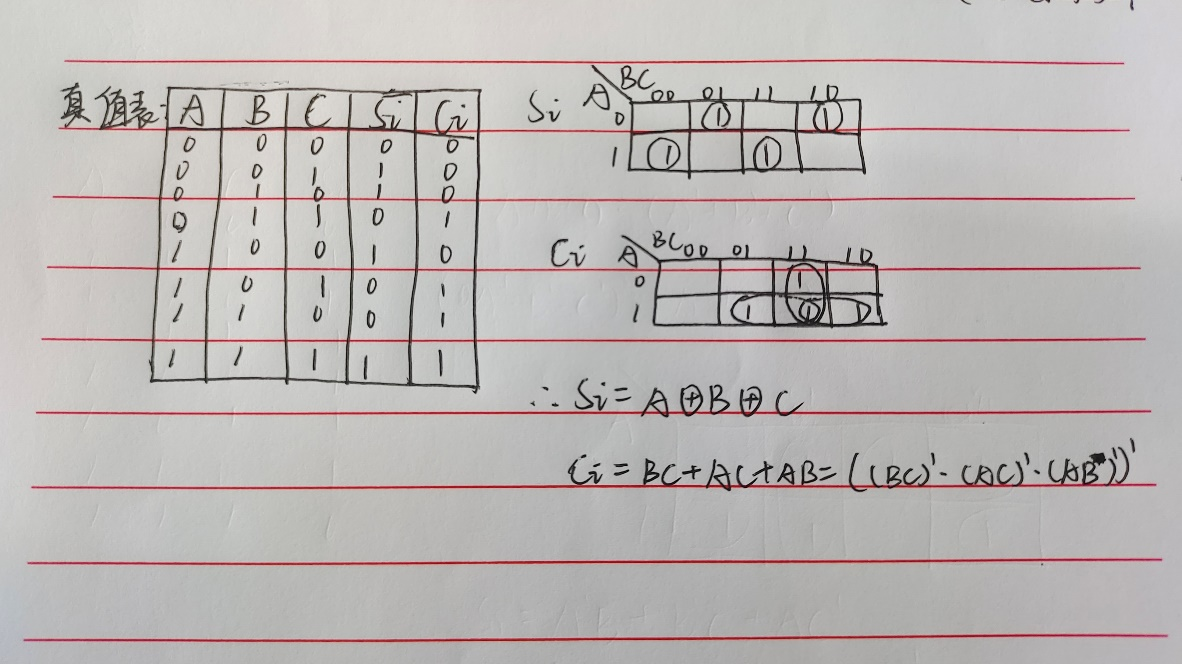 真值表: A B C Si Ci
0 0 0 0 0
0 0 1 1 0
0 1 0 1 0
0 1 1 0 1
1 0 0 1 0
1 0 1 0 1
1 1 0 0 1
1 1 1 1 1
Si A BC 00 01 11 10
0 1 1
1 1 1
Ci A BC 00 01 11 10
0 1
1 1 1 1
∴ Si = A⊕B⊕C
Ci = BC+AC+AB = ((BC)'·(AC)'·(AB)')'